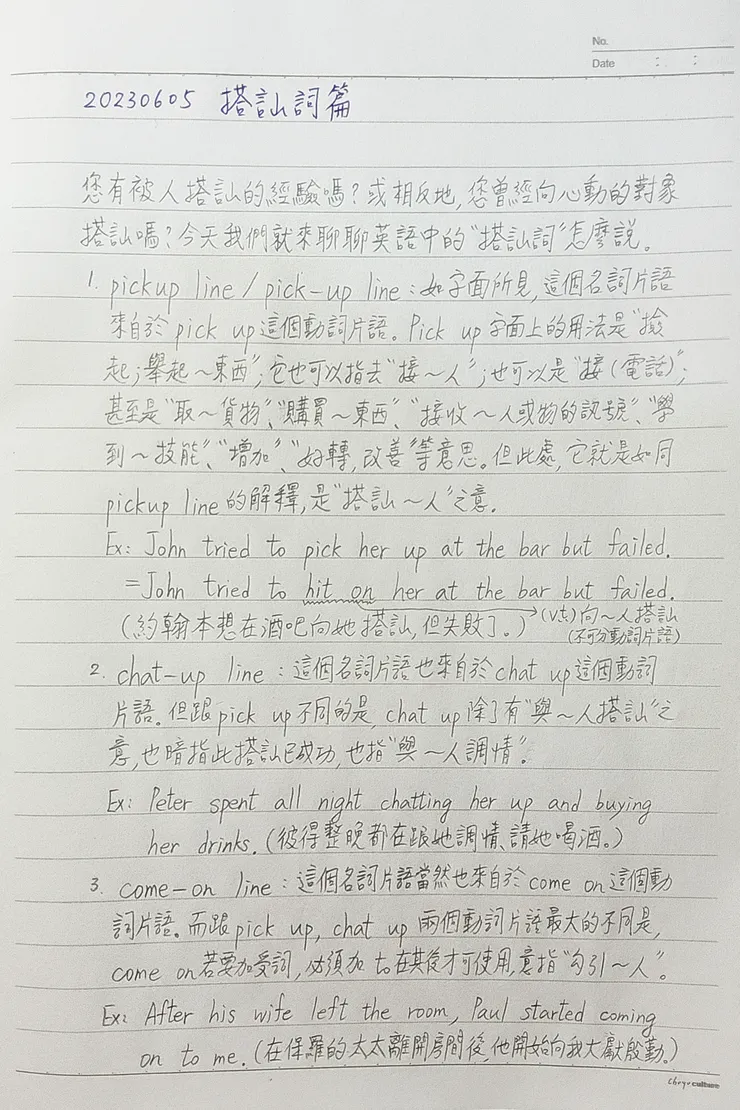 No.
Date : :
20230605 搭訕詞篇
您有被人搭訕的經驗嗎?或相反地,您曾經向心動的對象
搭訕嗎?今天我們就來聊聊英語中的"搭訕詞"怎麼說。
1. pickup line / pick-up line:如字面所見,這個名詞片語
來自於 pick up 這個動詞片語。Pick up 字面上的用法是"撿
起;舉起~東西";它也可以指去"接~人";也可以是"接(電話)";
甚至是"取~貨物"、"購買~東西"、"接收~人或物的訊號"、"學
到~技能"、"增加"、"好轉,改善"等意思。但此處,它就是如同
pickup line 的解釋,是"搭訕~人"之意.
Ex: John tried to pick her up at the bar but failed.
=John tried to hit on her at the bar but failed.
(約翰本想在酒吧向她搭訕,但失敗了。) (vt)向~人搭訕
(不可分動詞片語)
2. chat-up line:這個名詞片語也來自於 chat up 這個動詞
片語。但跟 pick up 不同的是, chat up 除了有"與~人搭訕"之
意,也暗指此搭訕已成功,也指"與~人調情"。
Ex: Peter spent all night chatting her up and buying
her drinks.(彼得整晚都在跟她調情、請她喝酒。)
3. come-on line:這個名詞片語當然也來自於 come on 這個動
詞片語。而跟 pick up, chat up 兩個動詞片語最大的不同是,
come on 若要加受詞,必須加 to 在其後才可使用,意指"勾引~人"。
Ex: After his wife left the room, Paul started coming
on to me.(在保羅的太太離開房間後,他開始向我大獻殷勤。)
culture